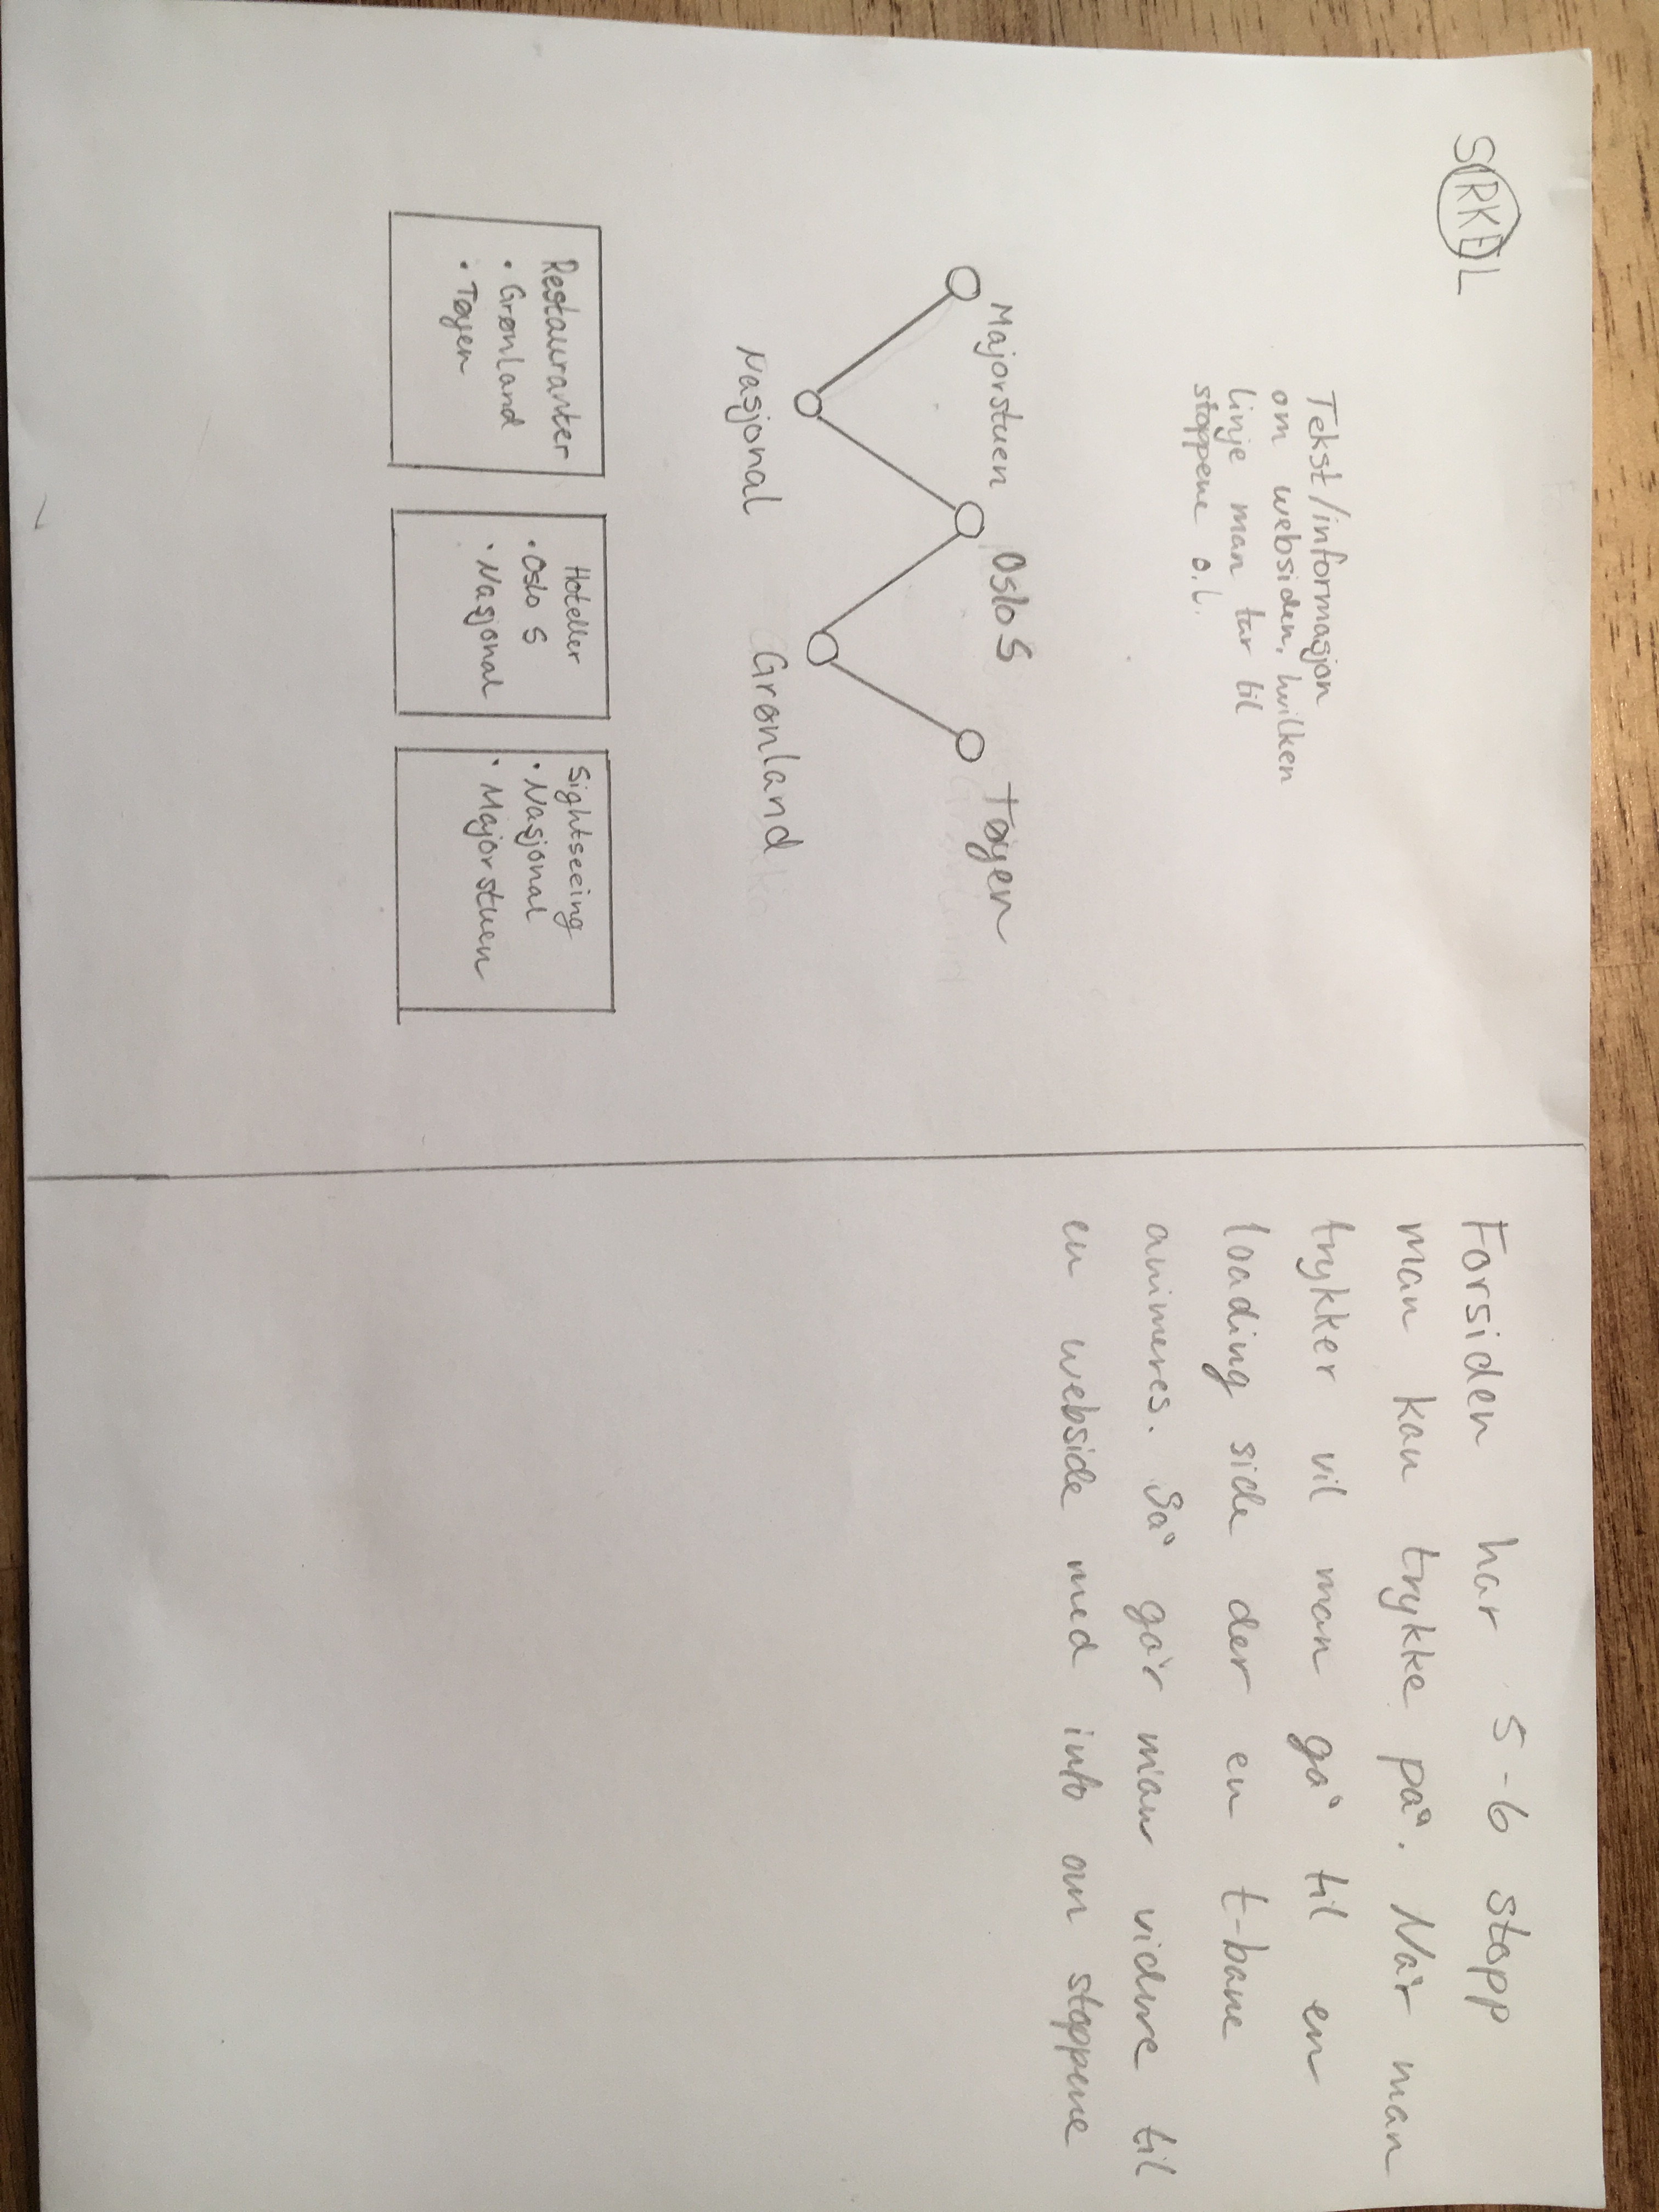 SIRKEL
Tekst/informasjon
om websiden, hvilken
linje man tar til
stoppene o.l.
Majorstuen
Oslo S
Tøyen
Nasjonal
Grønland
Restauranter
• Grønland
• Tøyen
Hoteller
• Oslo S
• Nasjonal
Sightseeing
• Nasjonal
• Majorstuen
Forsiden har 5-6 stopp
man kan trykke på. Når man
trykker vil man gå til en
loading side der en t-bane
animeres. Så går man videre til
en webside med info om stoppene